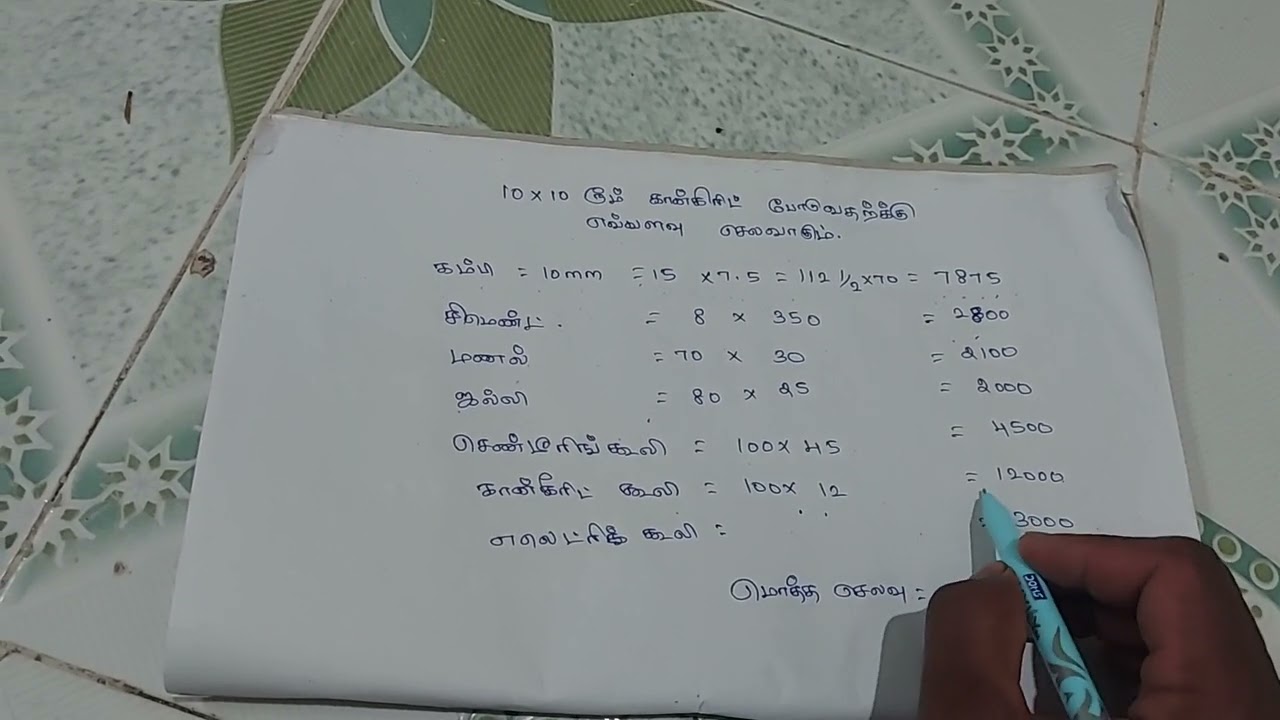 10 x 10 ரூம் கான்கிரிட் போடுவதற்க்கு
எவ்வளவு செலவாகும்.
கம்பி = 10mm = 15 x 7.5 = 112 1/2 x 70 = 7875
சிமெண்ட். = 8 x 350 = 2800
மணல் = 70 x 30 = 2100
ஜல்லி = 80 x 25 = 2000
செண்டிரிங் கூலி = 100 x 45 = 4500
கான்கிரிட் கூலி = 100 x 12 = 12000
எலெட்ரிக் கூலி = = 3000
மொத்த செலவு =